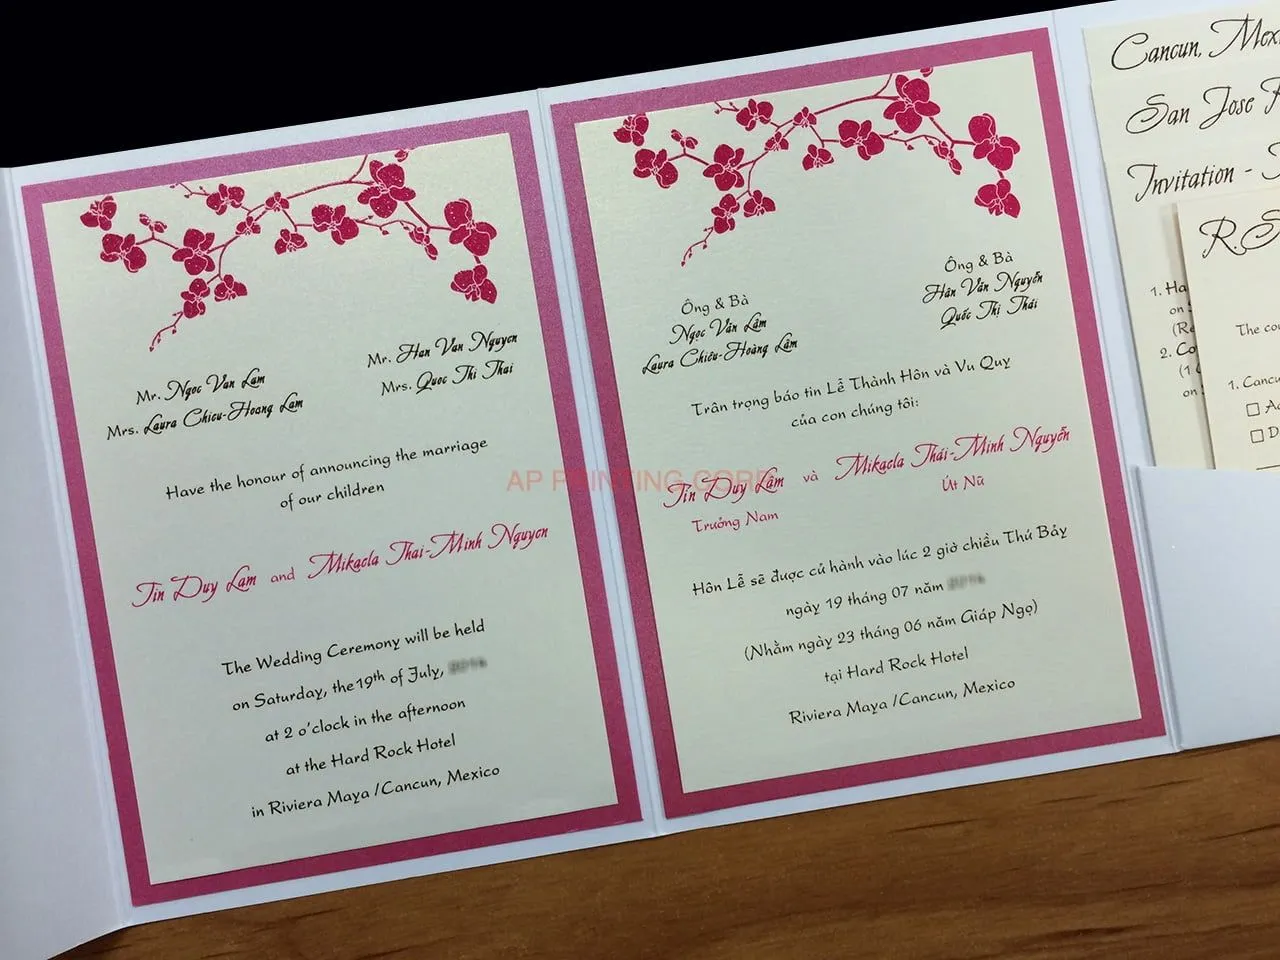 Mr. Ngoc Van Lam
Mrs. Laura Chieu-Hoang Lam
Mr. Han Van Nguyen
Mrs. Quoc Thi Thai
Have the honour of announcing the marriage
of our children
Tin Duy Lam and Mikaela Thai-Minh Nguyen
The Wedding Ceremony will be held
on Saturday, the 19th of July,
at 2 o'clock in the afternoon
at the Hard Rock Hotel
in Riviera Maya /Cancun, Mexico
Ông & Bà
Ngọc Văn Lâm
Laura Chiêu-Hoàng Lâm
Ông & Bà
Hân Văn Nguyễn
Quốc Thị Thái
Trân trọng báo tin Lễ Thành Hôn và Vu Quy
của con chúng tôi:
Tín Duy Lâm và Mikaela Thái-Minh Nguyễn
Trưởng Nam
Út Nữ
Hôn Lễ sẽ được cử hành vào lúc 2 giờ chiều Thứ Bảy
ngày 19 tháng 07 năm
(Nhằm ngày 23 tháng 06 năm Giáp Ngọ)
tại Hard Rock Hotel
Riviera Maya /Cancun, Mexico
AP PRINTING CORP
Cancun, Mexi
San Jose
Invitation -
R.S
1. Ha
on
(Re
2. Co
(1
on
The cou
1. Cancu
Ac
D